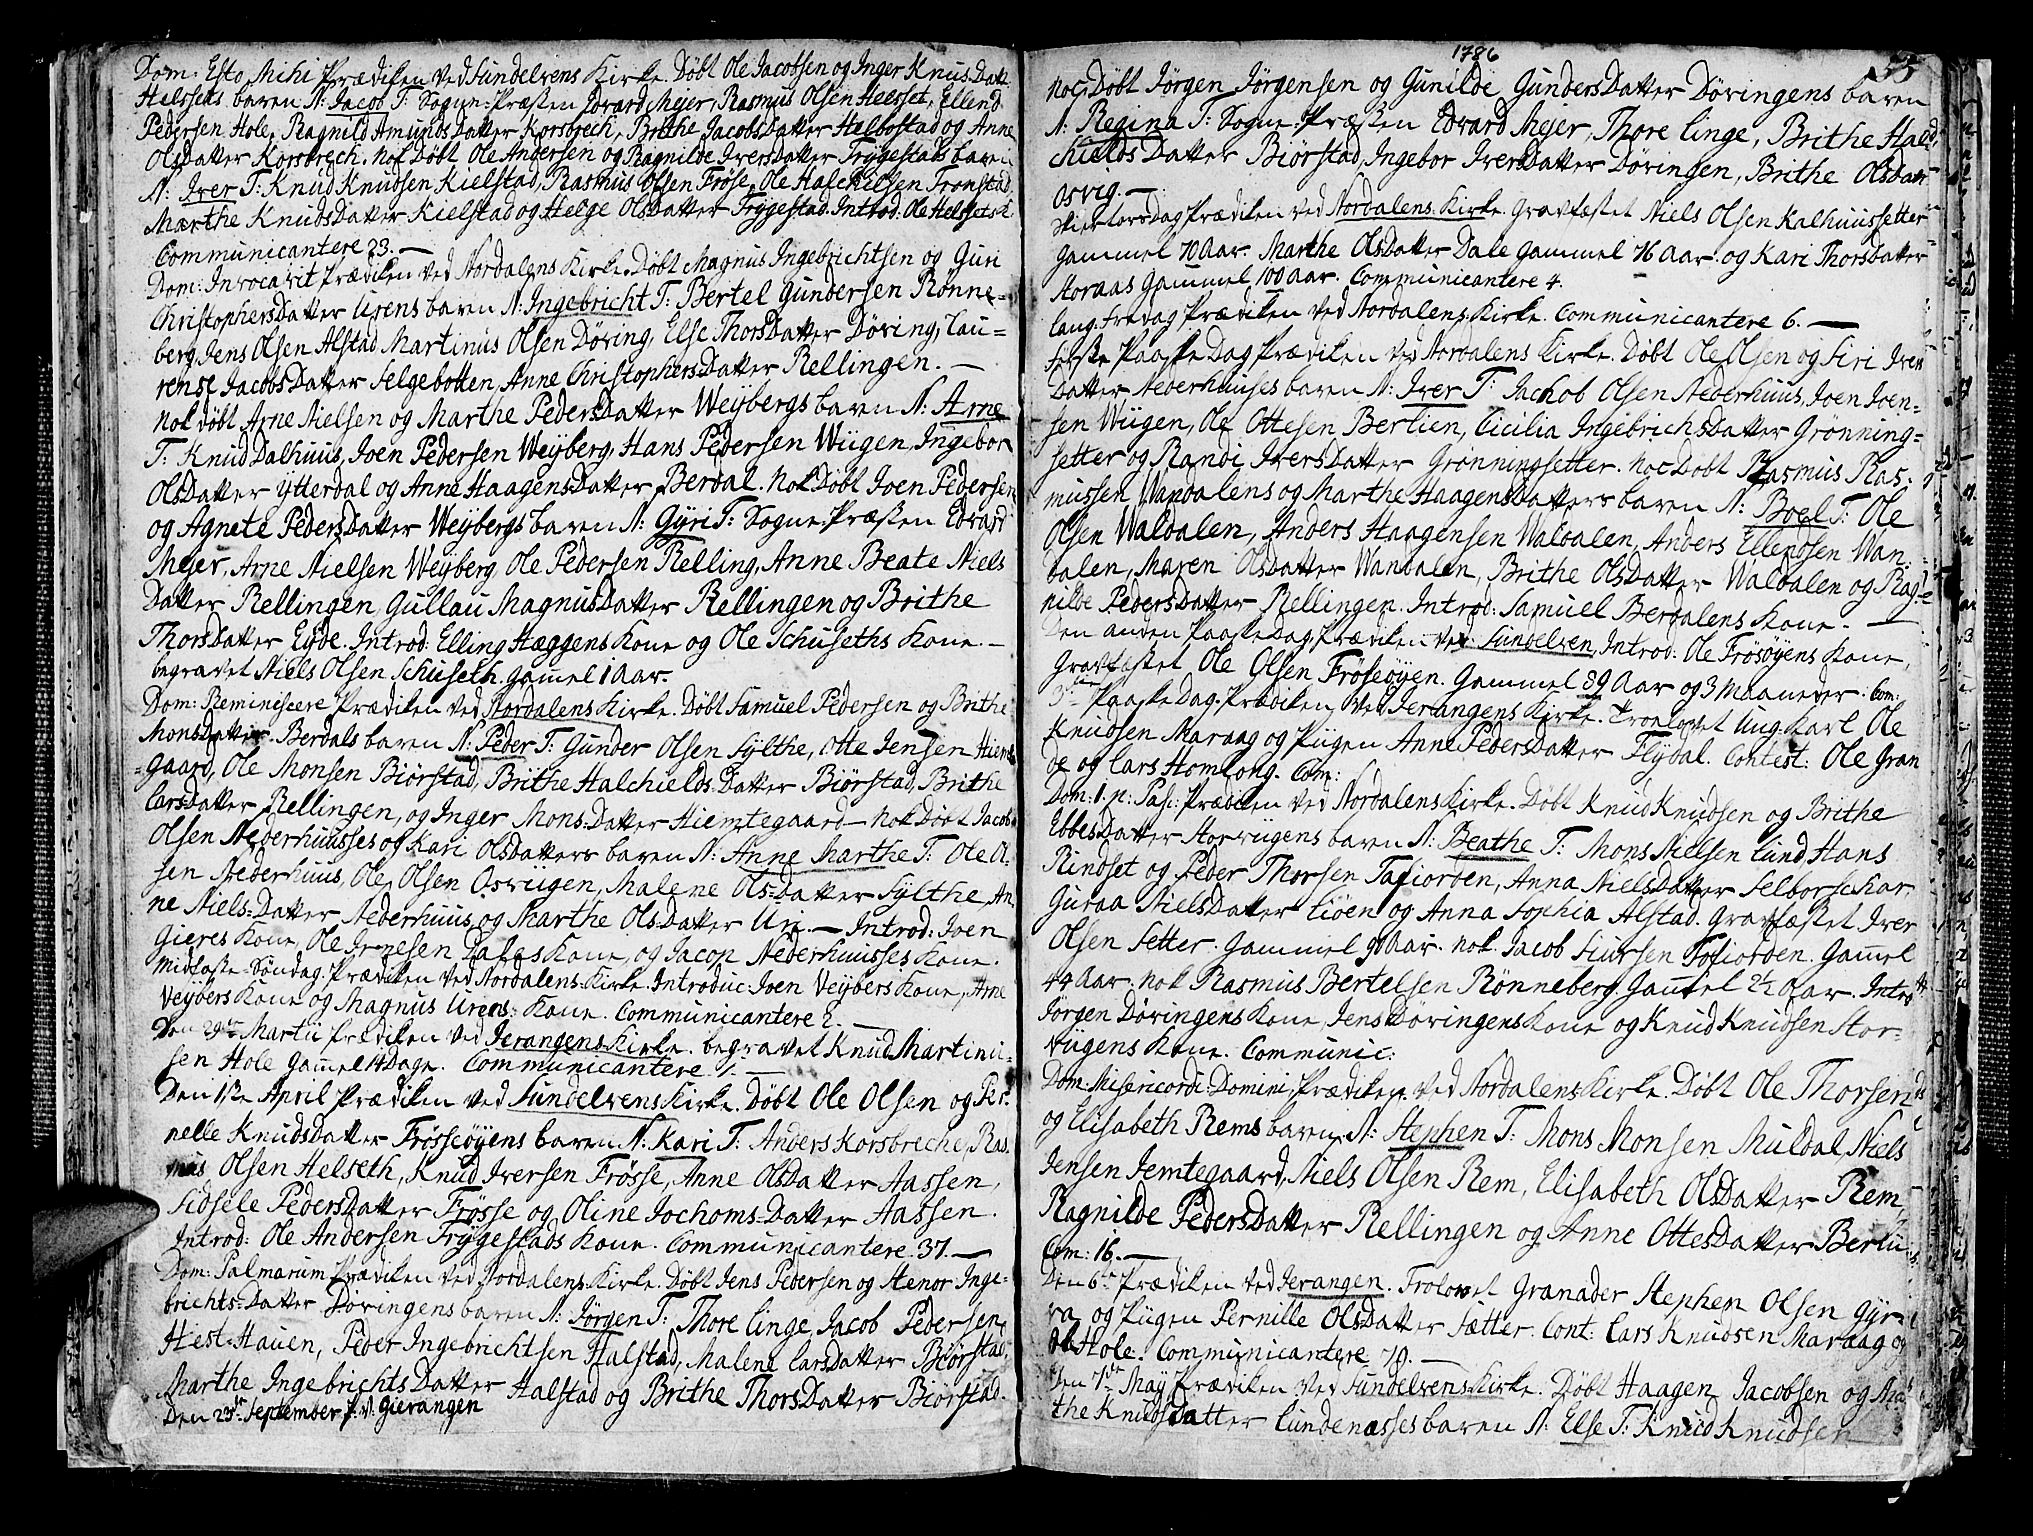 Dom: Esto Mihi Prædiken ved Sundelvens Kirke. Døbt Ole Jacobsen og Inger Knus Datt
Helsets baren N: Jacob T: Sogne-Præsten Edvard Mejer, Rasmus Olsen Heeset, Ellend
Pedersen Hole, Ragnild Amunds Datter Korsbrech, Brithe Jacobs Datter Helbostad og Anne
Olsdatter Korsbrech. Nok Døbt Ole Andersen og Ragnilde Iversdatter Frygestads baren
N: Iver T: Knud Knudsen Kielstad, Rasmus Olsen Frøse, Ole Halckilsen Tronstad,
Marthe Knuds Datter Kielstad og Helge Olsdatter Frygestad. Introd: Ole Helsets K.
Communicantere 23. —
Dom: Invocavit Prædiken ved Nordalens Kirke. Døbt Magnus Ingebrichtsen og Guri
Christophers Datter Urens baren N: Ingebricht T: Bertel Gundersen Rønne-
berg, Jens Olsen Alstad, Martinus Olsen Døring, Else Thors Datter Døring, Lau-
rense Jacobs Datter Selgebotten, Anne Christophers Datter Rellingen. —
Nok døbt Arne Nielsen og Marthe Peders Datter Weybergs baren N: Arne
T: Knud Dalhuus, Joen Pedersen Weyberg, Hans Pedersen Wiigen, Ingebor
Olsdatter Ytterdal og Anne Haagens Datter Berdal. Nok Døbt Joen Pedersen
og Agnete Peders Datter Weybergs baren N: Gyri T: Sogne-Præsten Edvard
Mejer, Arne Nielsen Weyberg, Ole Pedersen Relling, Anne Beate Niels
Datter Rellingen, Gullau Magnus Datter Rellingen og Brithe
Thors Datter Eyde. Introd: Elling Hæggens Kone og Ole Schuseths Kone. —
begravet Niels Olsen Schuseth. gamel 1 Aar.
Dom: Reminiscere Prædiken ved Nordalens Kirke. Døbt Samuel Pedersen og Brithe
Monsdatter Berdals baren N: Peder T: Gunder Olsen Sylthe, Otte Jensen Hiemte-
gaard, Ole Monsen Biørstad, Brithe Halchields-Datter Biørstad, Brithe
Larsdatter Rellingen, og Inger Mons-Datter Hiemtegaard — Nok Døbt Jacob
Olsen Nederhuusses og Kari Olsdatters baren N: Anne Marthe T: Ole Ol
sen Nederhuus, Ole Olsen Osviigen, Malene Ols-Datter Sylthe, An-
ne Niels-Datter Nederhuus og Marthe Ols-Datter Uri. — Introd: Joen
Gieres Kone, Ole Jensen Dales Kone, og Jacop Nederhuusses Kone.
Midfaste-Søndag Prædiken ved Nordalens Kirke. Introduc: Joen Veybers Kone, Arne
Veybers Kone og Magnus Urens Kone. Communicantere 2. —
Den 29de Martii Prædiken ved Jerangens Kirke. begravet Knud Martinu-
sen Hole gamel 14 Dage. Communicantere 1. —
Den 1ste April Prædiken ved Sundelvens Kirke. Døbt Ole Olsen og Per-
nelle Knudsdatter Frøssøyens baren N: Kari T: Anders Korsbreche, Ras-
mus Olsen Helseth, Knud Iversen Frøsse, Anne Olsdatter Aassen,
Sidsele Pedersdatter Frøsse og Oline Jochoms-Datter Aassen.
Introd: Ole Andersen Frygestads Kone. Communicantere 37. —
Dom: Palmarum Prædiken ved Nordalens Kirke. Døbt Jens Pedersen og Stenor Inge-
brichts-Datter Døringens baren N: Jørgen T: Thore Linge, Jacob Pedersen
Hest-Hauen, Peder Ingebrichtsen Halstad, Malene Larsdatter Biørstad,
Marthe Ingebrichts Datter Halstad og Brithe Thors Datter Biørstad.
Den 23de September P. V. Gierangen
1786
55
Noc Døbt Jørgen Jørgensen og Gunilde Gunders Datter Døringens baren
N: Regina T: Sogne-Præsten Edvard Mejer, Thore Linge, Brithe Hald
chields Datter Biørstad, Ingebor Ivers Datter Døringen, Brithe Olsdatt
Osvig. —
Skiertorsdag Prædiken ved Nordalens Kirke. Gravfæstet Niels Olsen Kalhuussetter
Gammel 70 Aar. Marthe Olsdatter Dale Gammel 76 Aar. og Kari Thorsdatter
Storaas Gammel 100 Aar. Communicantere 4.
Lang-Fredag Prædiken ved Nordalens Kirke. Communicantere 6. —
Første Paaske Dag Prædiken ved Nordalens Kirke. Døbt Ole Olsen og Siri Ivers
Datter Nederhuuses baren N: Iver T: Jachob Olsen Nederhuus, Joen Joen-
sen Wiigen, Ole Ottesen Berlien, Cicilia Ingebrichs Datter Grønning-
setter og Randi Ivers Datter Grønningsetter. Noc Døbt Rasmus Ras-
mussen Wandalens og Marthe Haagens Datters baren N: Boel T: Ole
Olsen Waldalen, Anders Haagensen Waldalen, Anders Ellendsen Wan-
dalen, Maren Olsdatter Wandalen, Brithe Olsdatter Waldalen og Rag-
nilde Pedersdatter Rellingen. Introd: Samuel Berdalens Kone. —
Den anden Paaske Dag Prædiken ved Sundelven, Introd: Ole Frøsøyens Kone,
Gravfæstet Ole Olsen Frøseøyen. Gammel 89 Aar og 3 Maaneder. Com:
3die Paaske Dag Prædiken ved Jerangens Kirke. Trolovet Ung Karl Ole
Knudsen Maraag og Piigen Anne Peders Datter Flydal. Contest: Ole Gran
de og Lars Homlong. Com:
Dom: 1. p: Pas: Prædiken ved Nordalens Kirke. Døbt Knud Knudsen og Brithe
Ebbes Datter Storviigens baren N: Beathe T: Mons Nielsen Lund, Hans
Rindset og Peder Thorsen Tafiorden, Anna Niels Datter Selborschar,
Guraa Nielsdatter Liøen og Anna Sophia Alstad. Gravfæstet Iver
Olsen Setter. Gammel 90 Aar. nok Jacob Siursen Tafiorden. Gamel
44 Aar. nok Rasmus Bertelsen Rønneberg. Gamel 2½ Aar. Introd
Jørgen Døringens Kone, Jens Døringens Kone og Knud Knudsen Stor-
viigens Kone. Communic:
Dom: Misericordi-Domini Prædiken ved Nordalens Kirke. Døbt Ole Thorsen
og Elisabeth Rems baren N: Stephen T: Mons Monsen Muldal, Niels
Jensen Jemtegaard, Niels Olsen Rem, Elisabeth Olsdatter Rem,
Ragnilde Peders Datter Rellingen og Anne Ottes Datter Berlii
Com: 16. —
Den 6te Prædiken ved Jerangen. Trolovet Granader Stephen Olsen Gyr-
va og Piigen Pernille Olsdatter Sætter. Cont: Lars Knudsen Maraag og
Ole Hole. Communicantere 70. —
Den 7de Maii Prædiken ved Sundelvens Kirke. Døbt Haagen Jacobsen og Mar
the Knudsdatter Lundenæsses baren N: Else T: Knud Knudsen